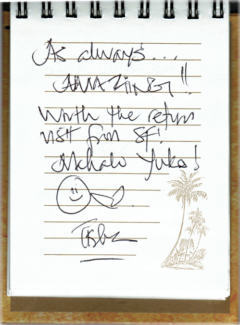 As always...
AMAZiNG!!
Worth the return
visit from SF!
Mahalo Yuko!